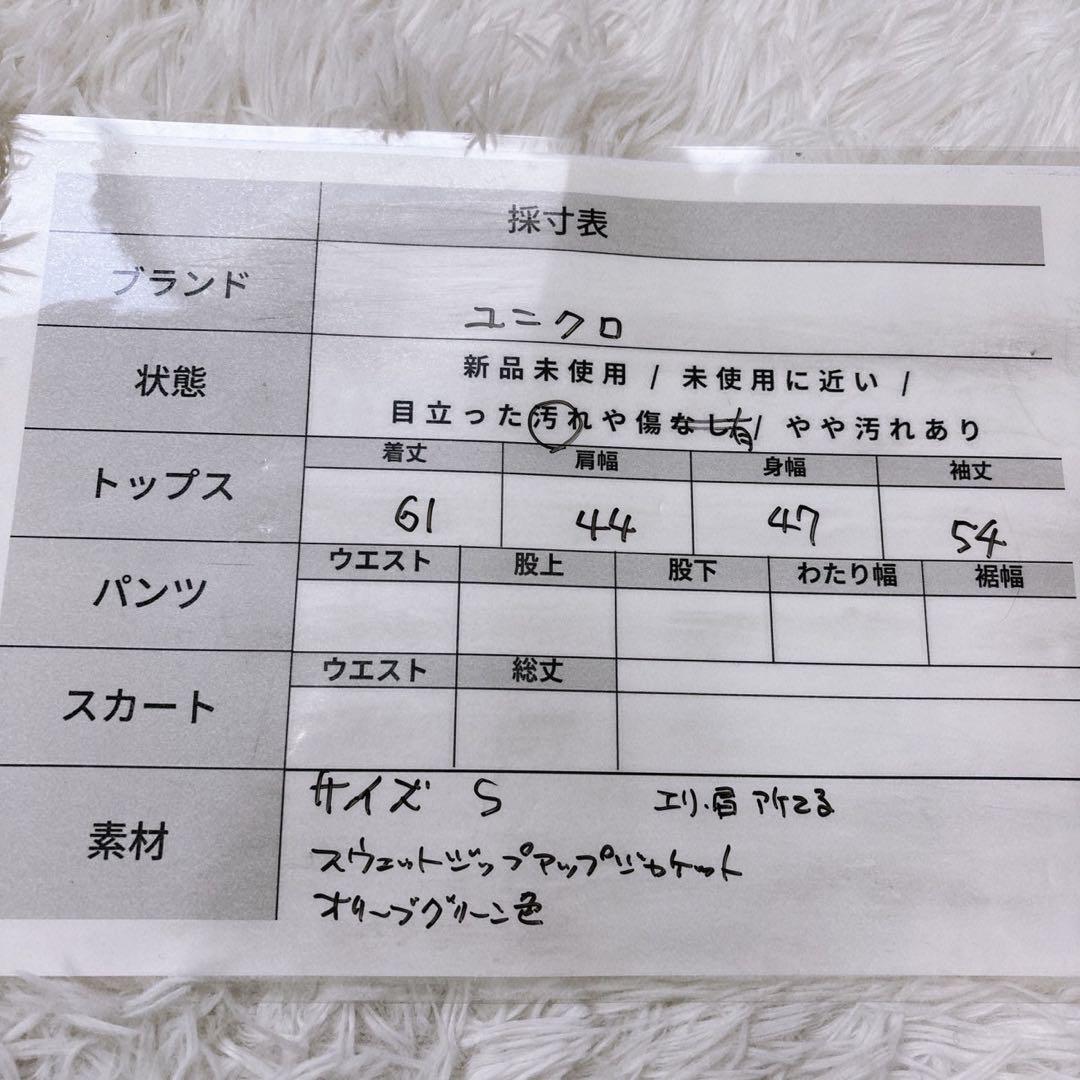 採寸表
ブランド
ユニクロ
状態
新品未使用 / 未使用に近い /
目立った汚れや傷なし有/ やや汚れあり
トップス
着丈 肩幅 身幅 袖丈
61 44 47 54
パンツ
ウエスト 股上 股下 わたり幅 裾幅
スカート
ウエスト 総丈
素材
サイズ S エリ・肩 アケてる
スウェットジップアップジャケット
オリーブグリーン色